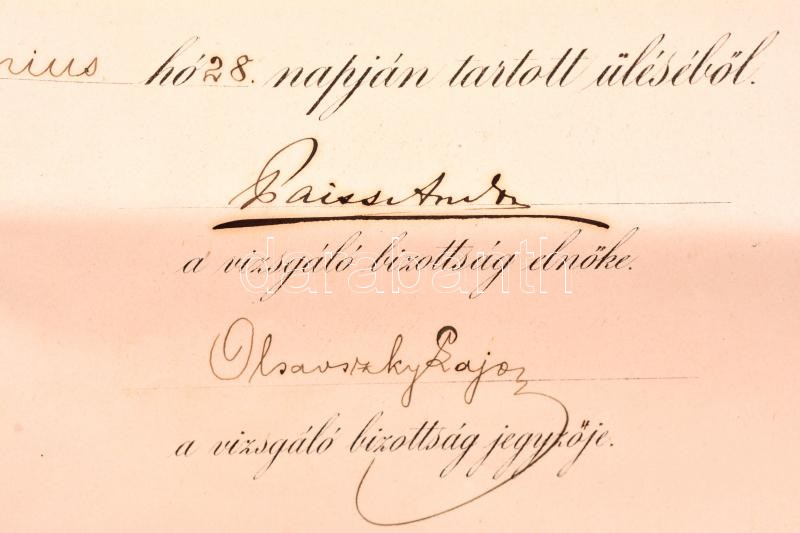 nius hó 28. napján tartott üléséből.
Paiss Andor
a vizsgáló bizottság elnöke.
darabanth
Olsavszky Lajos
a vizsgáló bizottság jegyzője.